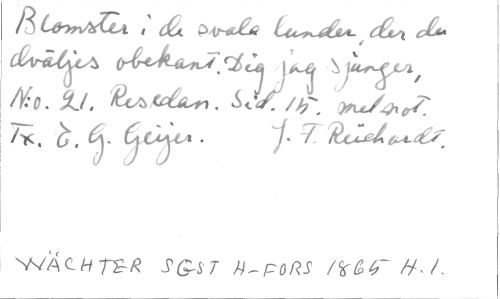 Blomster i de svala lunder, der du
dväljes obekant. Dig jag sjunger,
N:o. 21. Resedan. Sid. 15. mel. not.
Tx. E. G. Geijer. J. F. Reichardt.
WÄCHTER SGST H-FORS 1865 H.1.